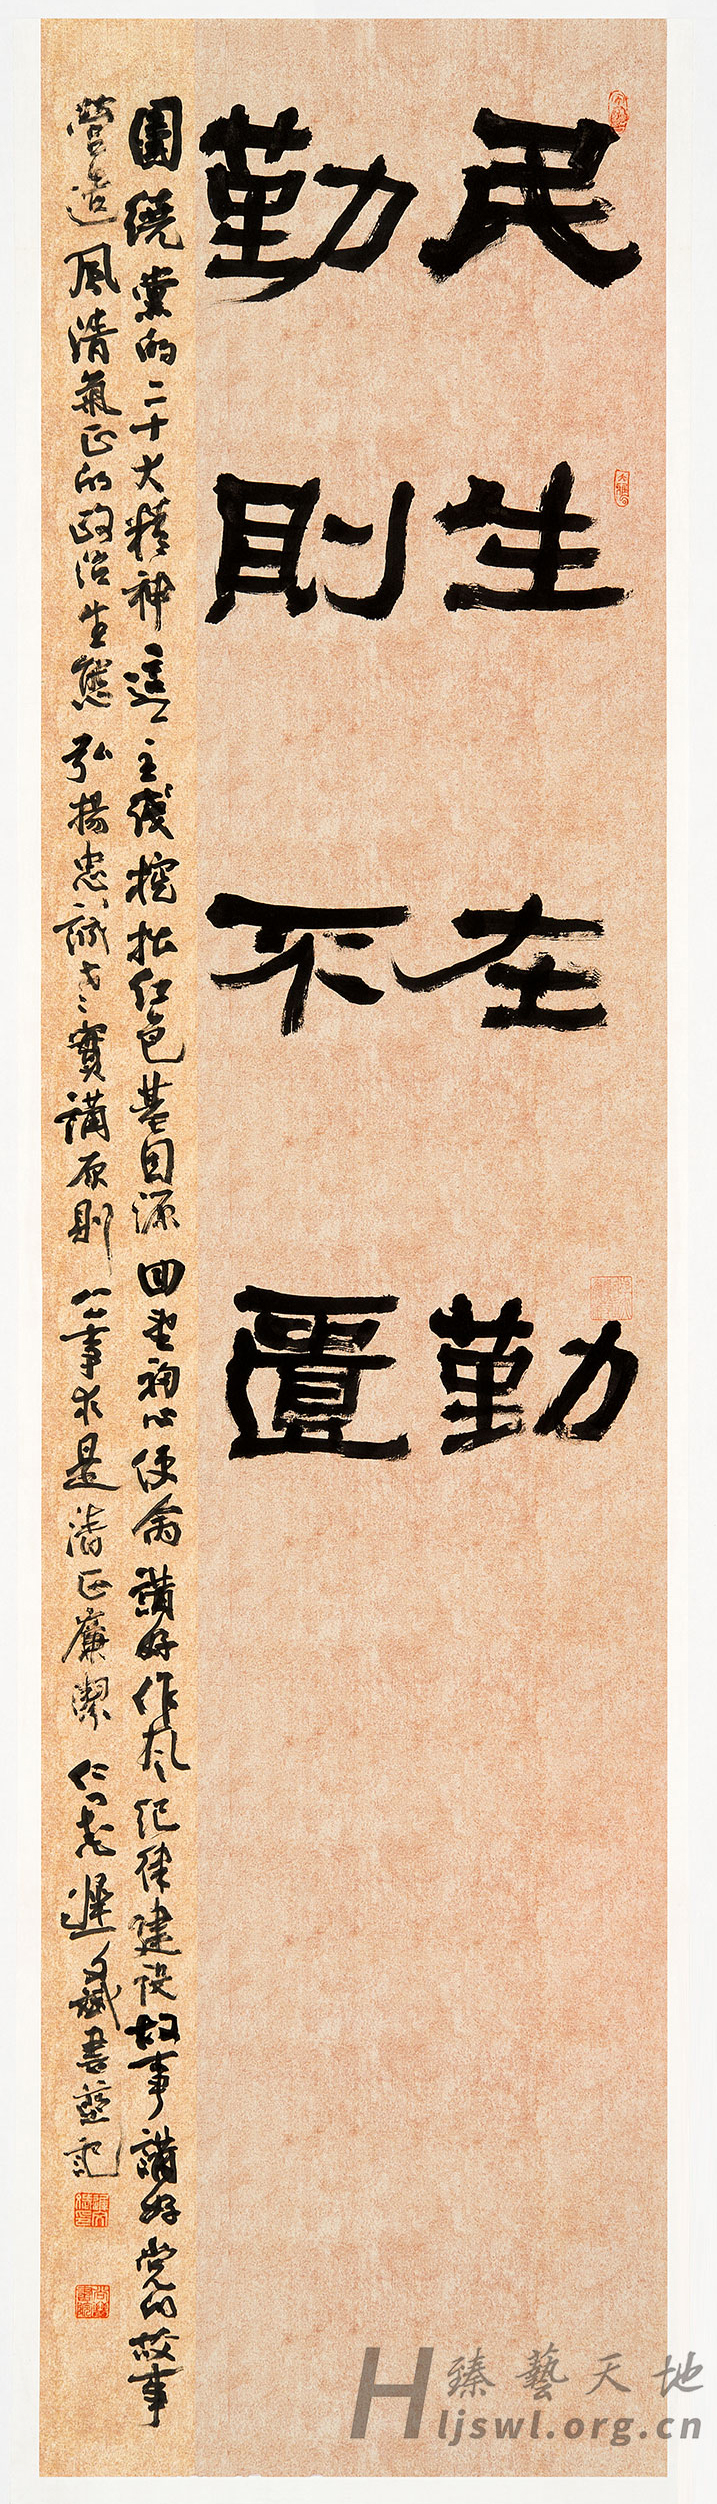 民生在勤
勤則不匱
圍繞黨的二十大精神這一主线挖掘红色基因源回望初心使命講好作风纪律建设故事講好党的故事
營造風清氣正的政治生態弘揚忠誠老實講原則公事求是清正廉潔仁者遲
書並記
臻藝天地
Hljswl.org.cn